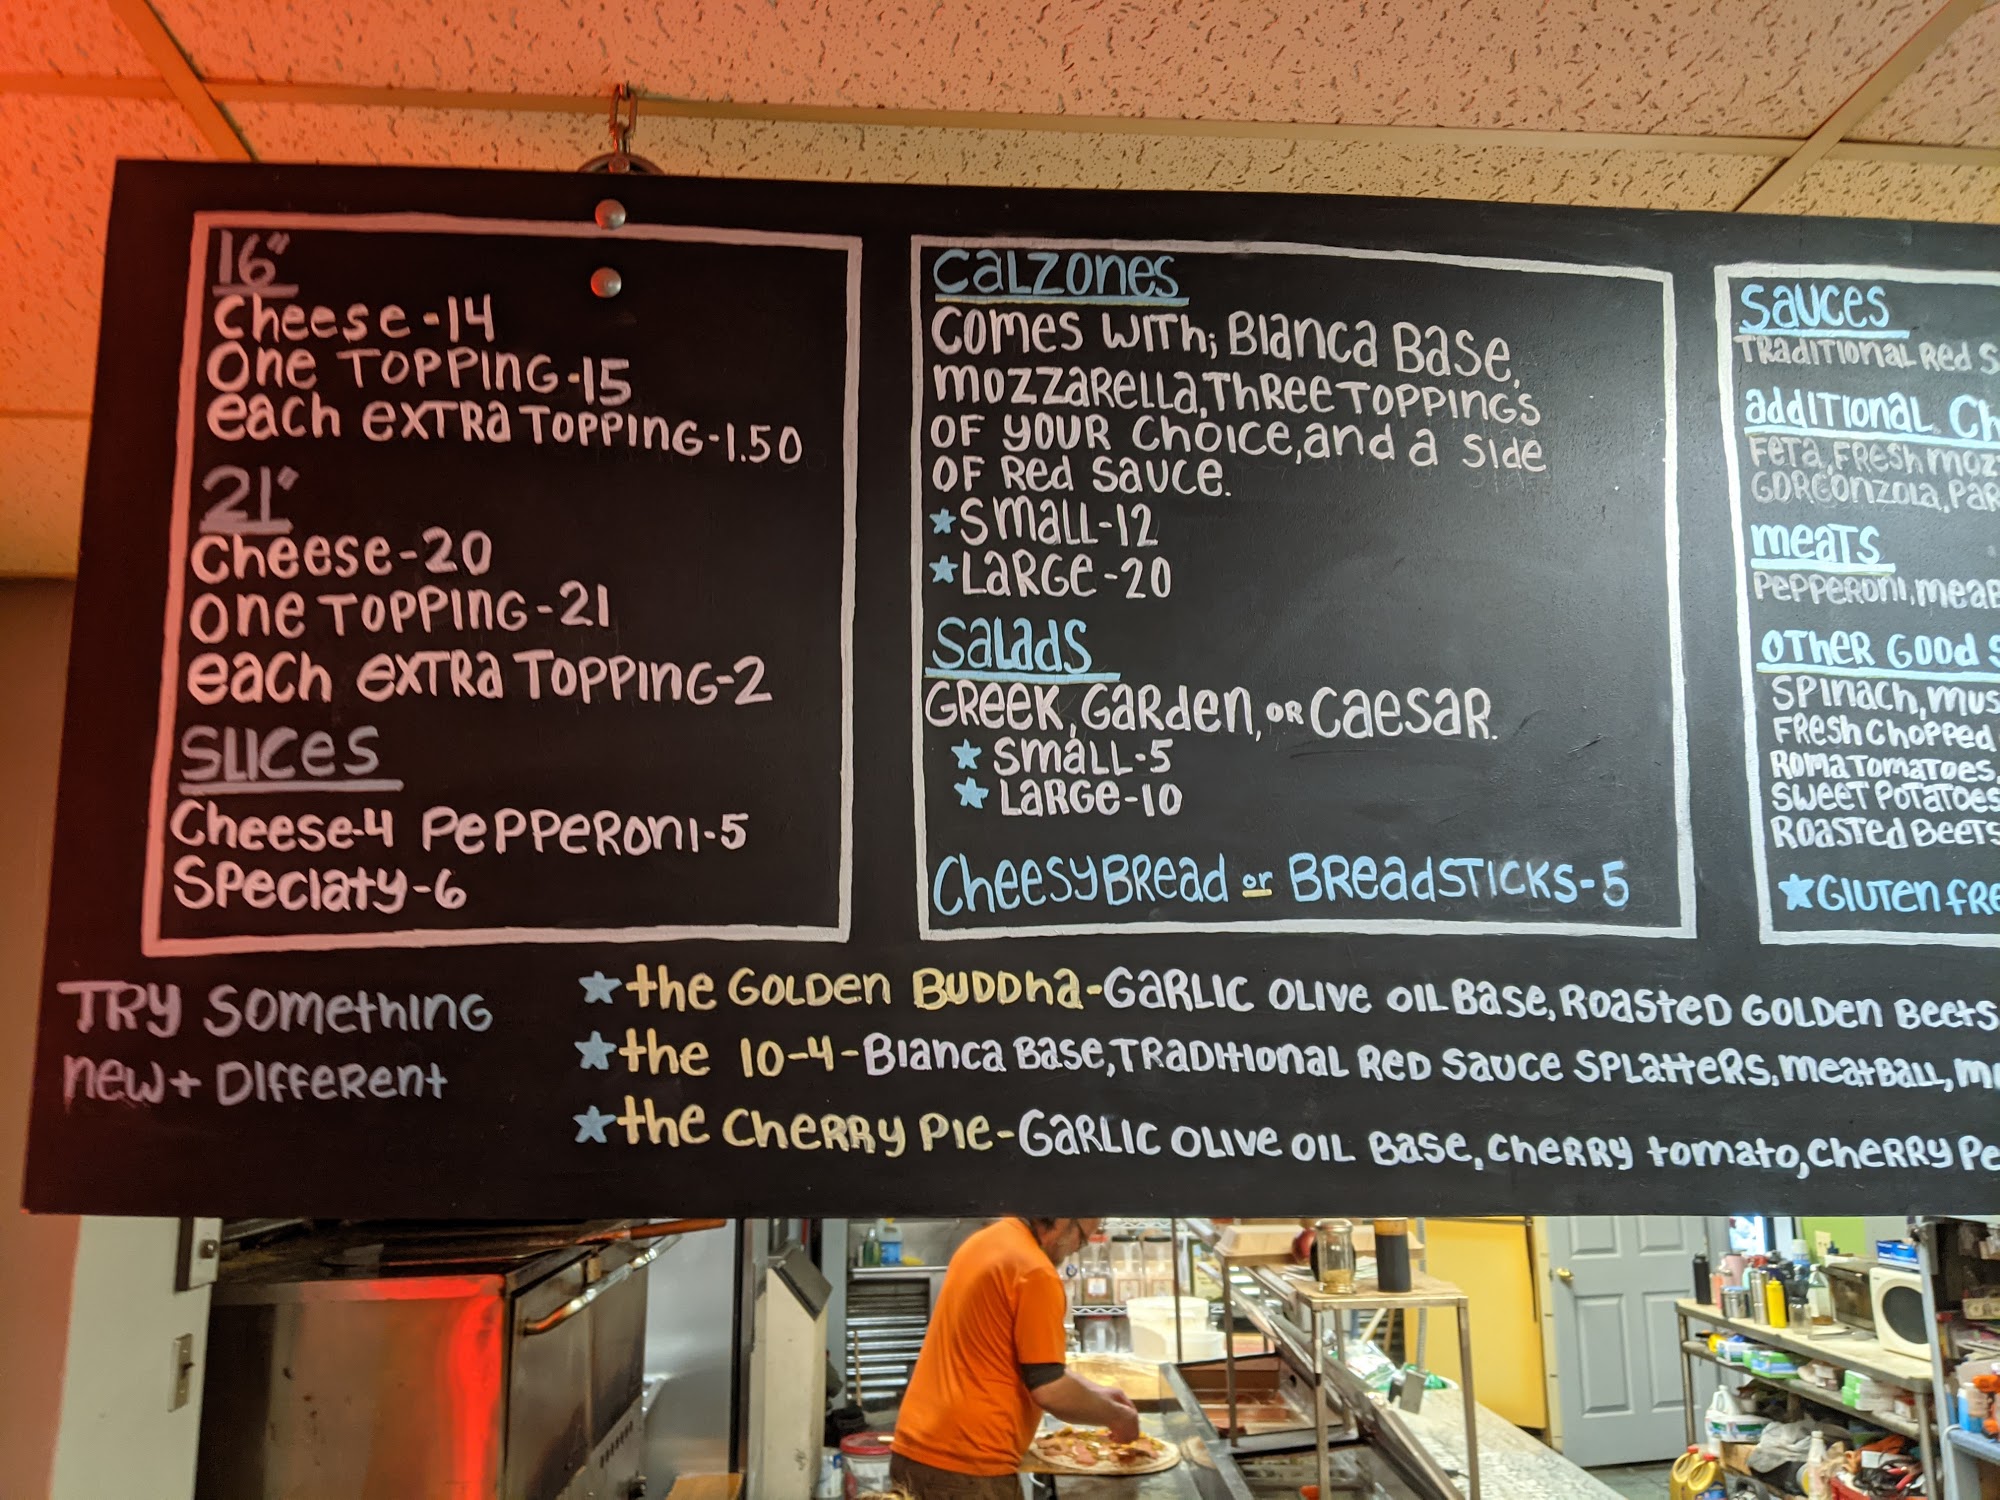 16"
Cheese-14
One Topping-15
each extra topping-1.50
21"
Cheese-20
One Topping-21
each extra topping-2
Slices
Cheese-4 Pepperoni-5
Specialty-6
Calzones
Comes with; Bianca Base,
Mozzarella, Three Toppings
of your choice, and a side
of Red Sauce.
★Small-12
★Large-20
Salads
Greek, Garden, or Caesar.
★ Small-5
★ Large-10
Cheesy Bread or Breadsticks-5
Sauces
Traditional Red
Additional
Feta, Fresh
Gorgonzola,
Meats
Pepperoni,
Other Good
Spinach,
Fresh Chopped
Roma Tomatoes,
Sweet Potatoes
Roasted Beets
★Gluten
Try Something
new + Different
★the Golden Buddha-Garlic Olive Oil Base, Roasted Golden Beets
★the 10-4-Bianca Base, Traditional Red Sauce Splatters, Meatball,
★the Cherry Pie-Garlic Olive Oil Base, Cherry Tomato, Cherry